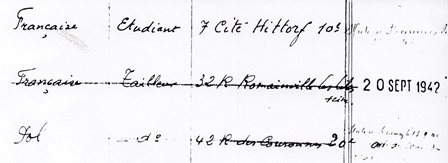 Française Etudiant 7 Cité Hittorf 10e
Française Tailleur 32 R Romainville les Lilas 20 SEPT 1942
Seine
Pol do 42 R des Couronnes 20e